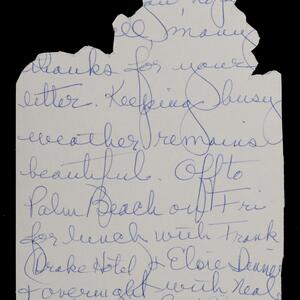 many
thanks for your
letter. Keeping busy
weather remains
beautiful. Off to
Palm Beach on Fri
for lunch with Frank
(Drake Hotel) + Eloise Dinner
+ overnight with Neal